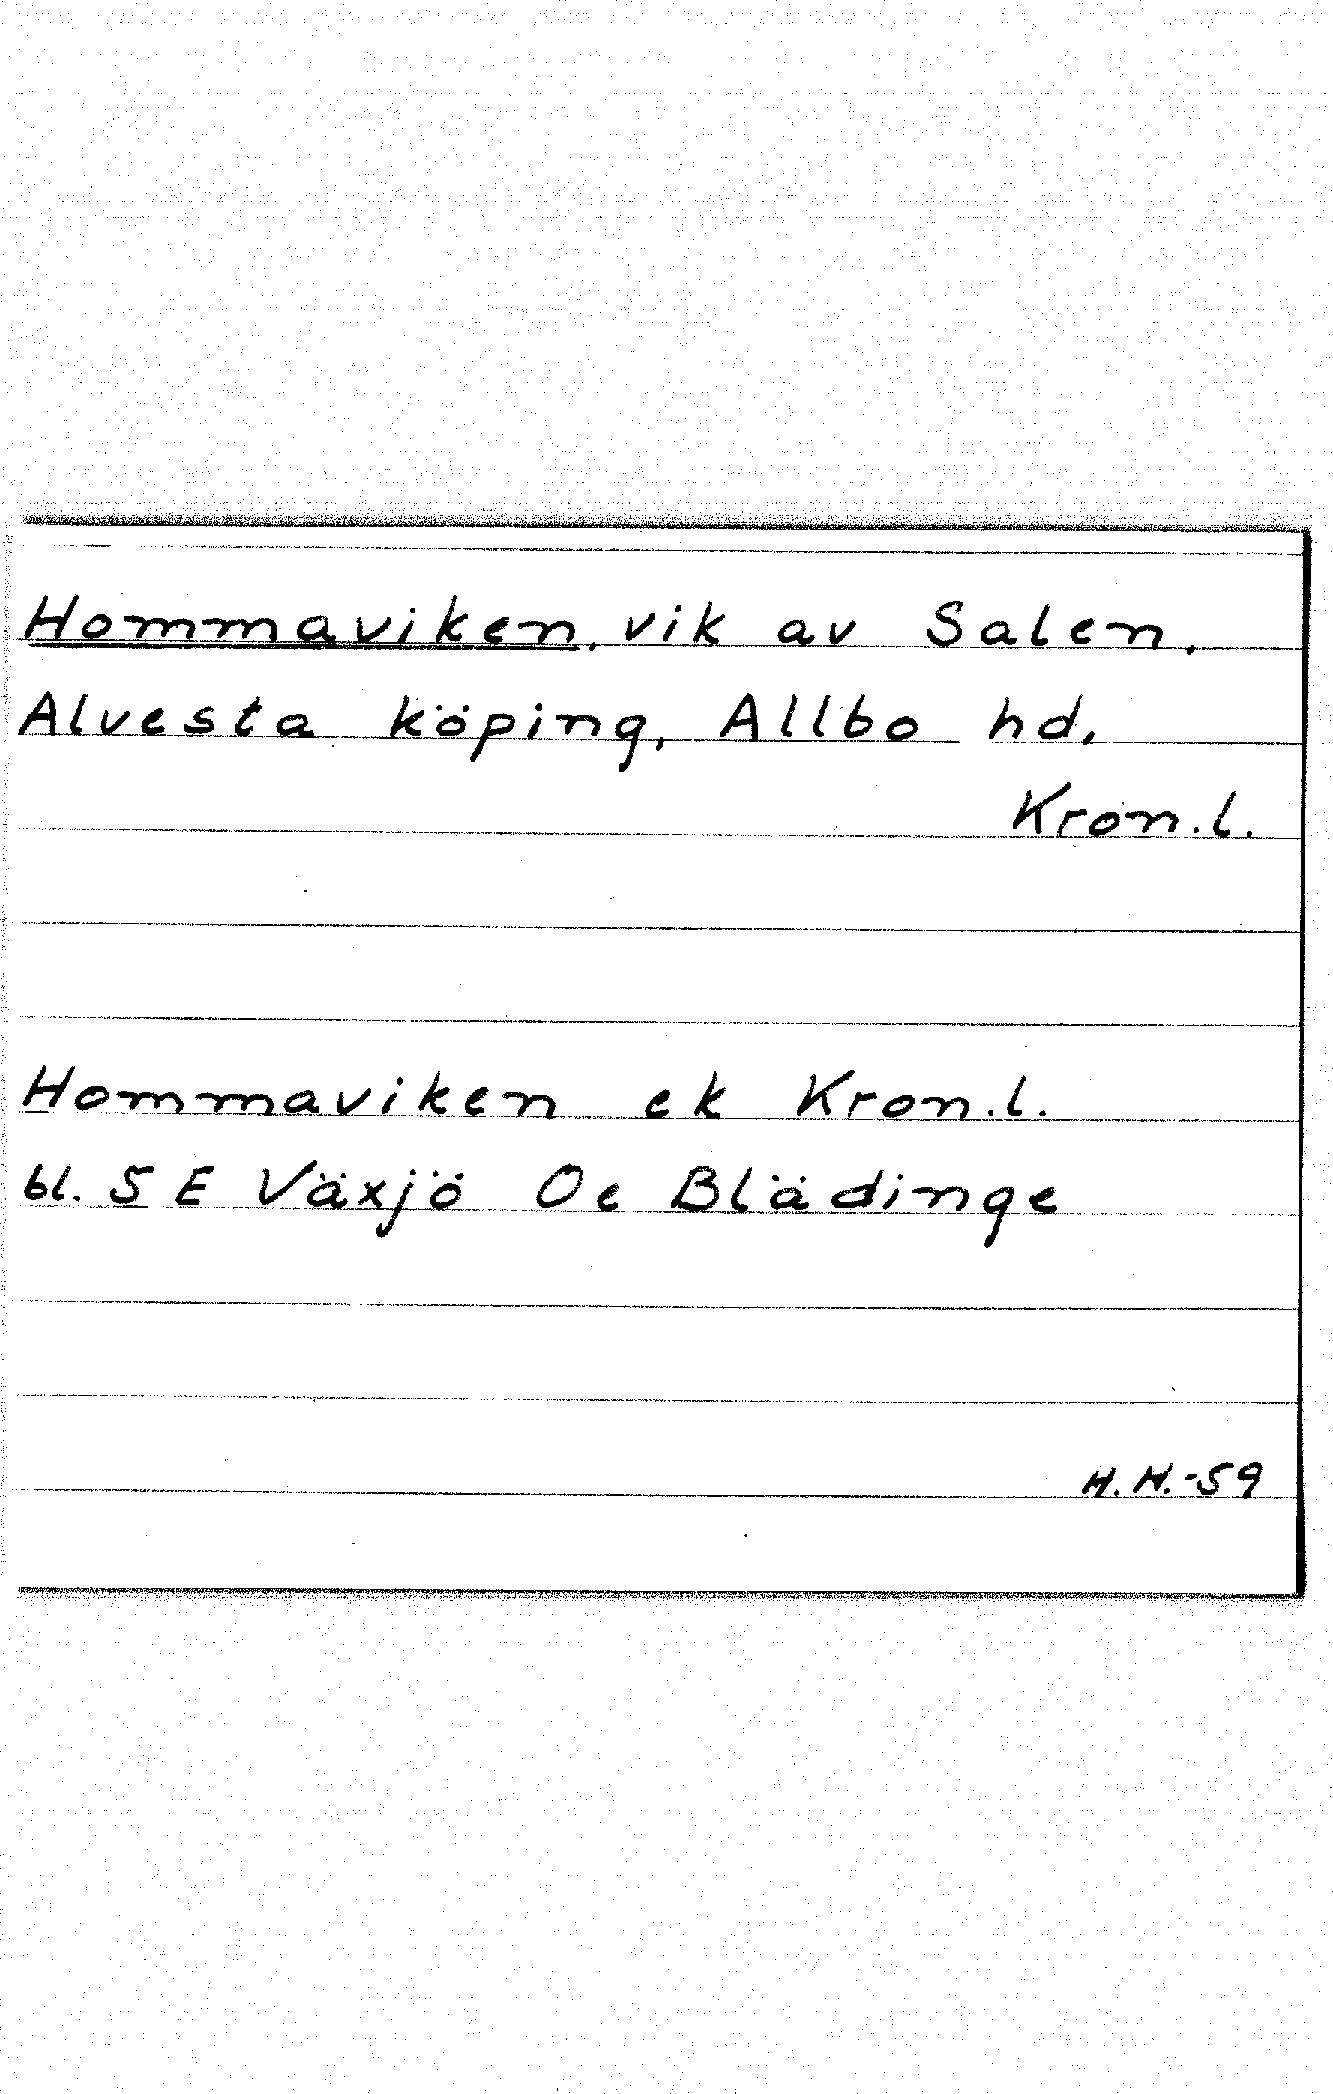 Hommaviken, vik av Salen,
Alvesta köping, Allbo hd,
Kron.l.
Hommaviken ek Kron.l.
bl. 5 E Växjö Oe Blädinge
H.H.-59